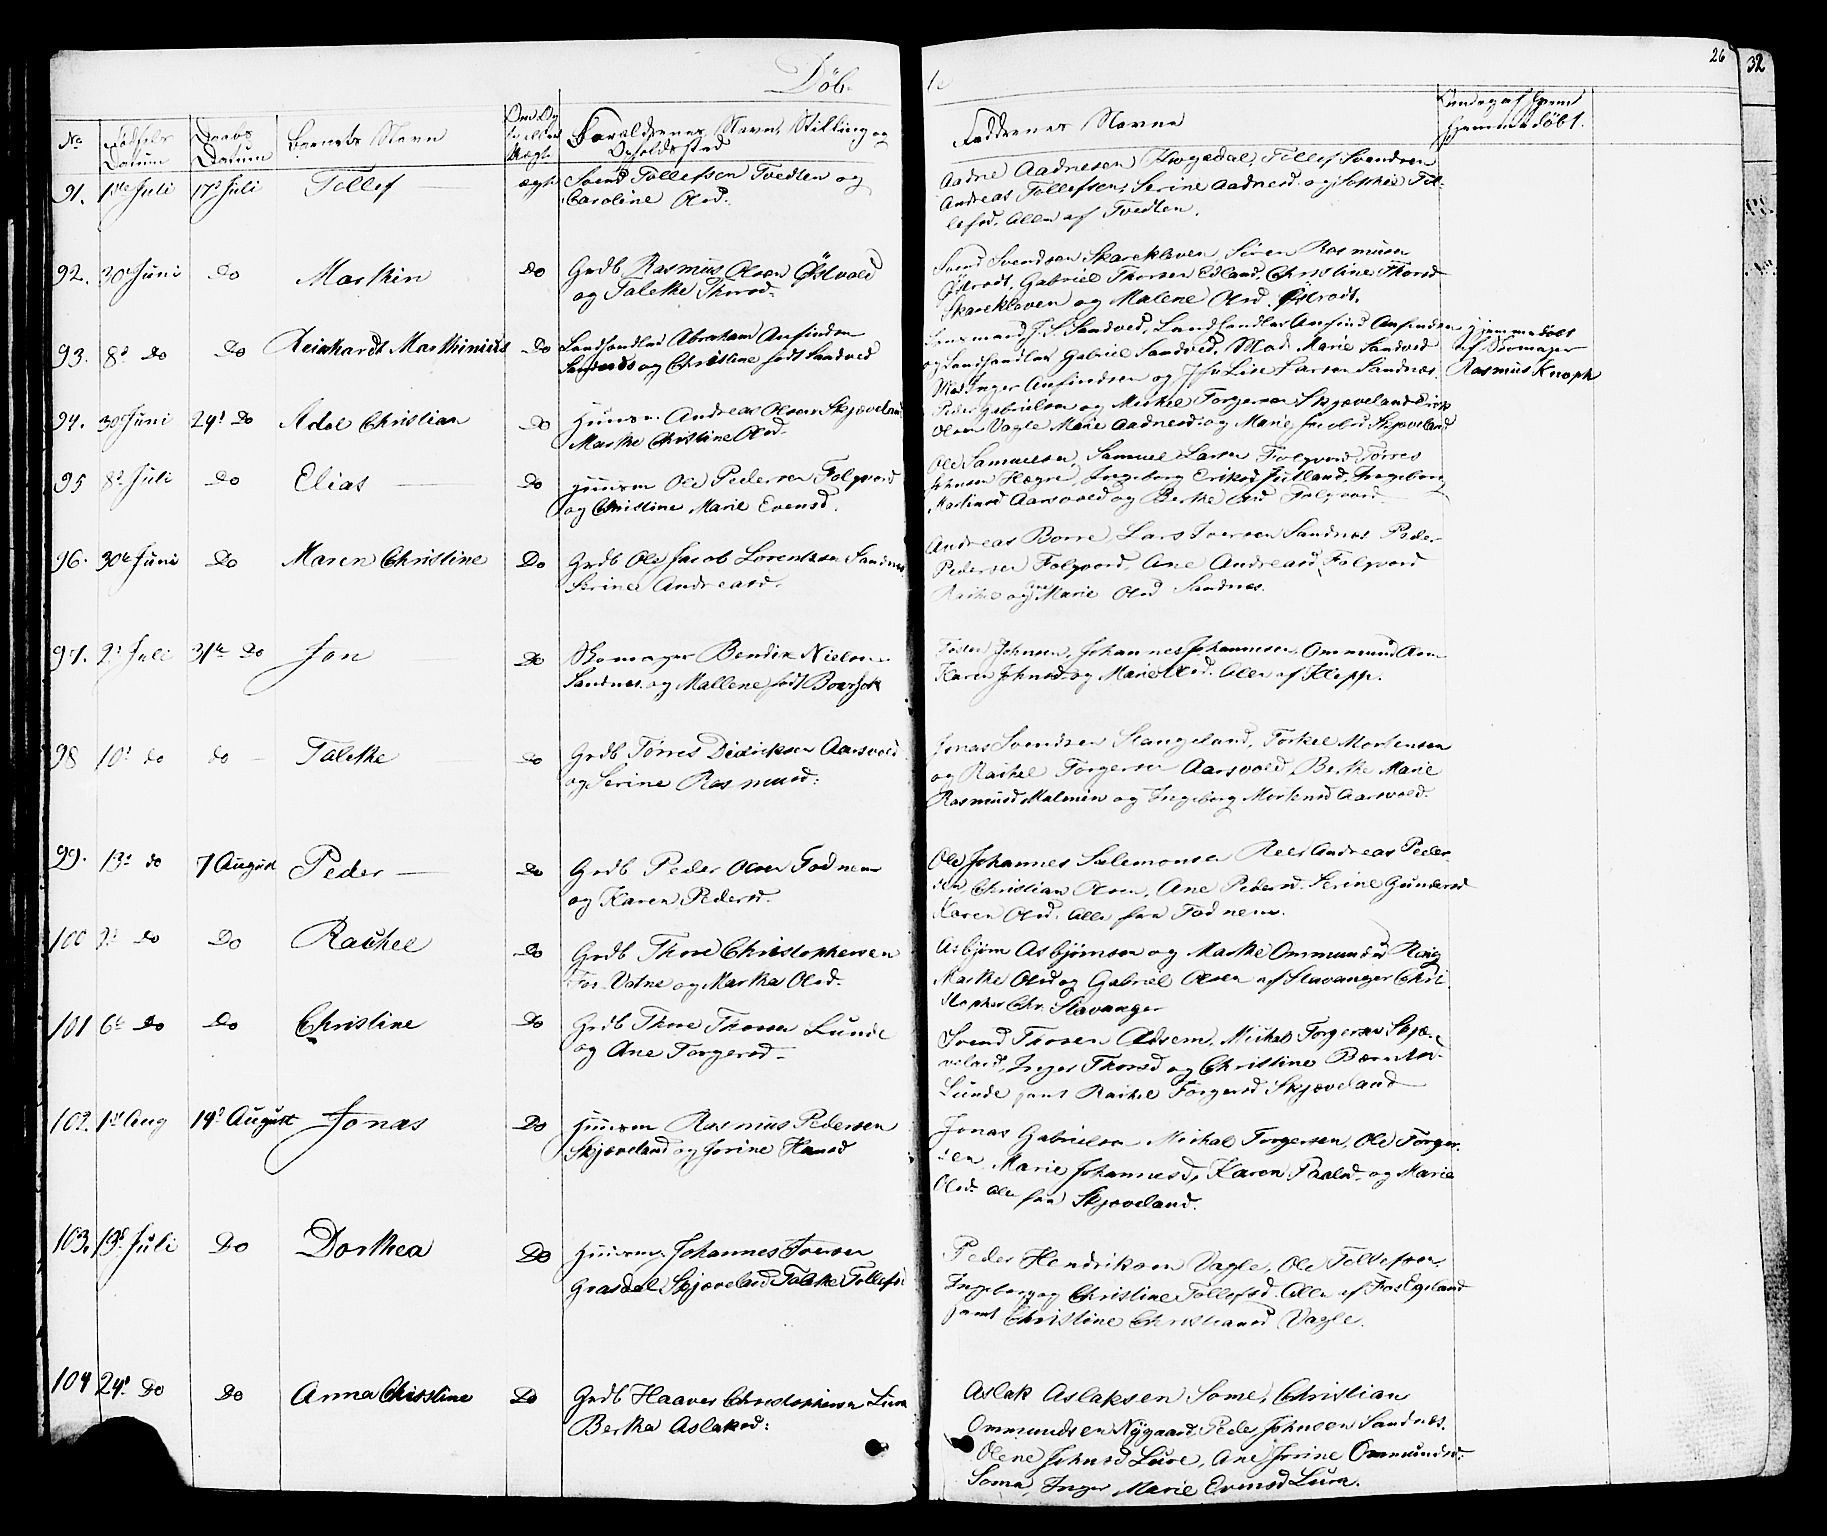 Døb
26
32
No
Fødsels Datum
Daabs Datum
Barnets Navn
Forældrenes Navn, Stilling og Opholdssted
Faddernes Navne
hjemmedøbt.
91. Juli 17d Juli Tollef ægte Svend Tollefsen Tvedten og
Caroline Olsd.
Aadne Aadnesen Tollef Svendsen
Andreas Tollefsen, Serine Aadnesd. og Tol-
lefsd. Alle af Tvedten.
92. 30 Juni Do Marthin Do Grdb Rasmus Olsen Østvold
og Talethe Thorsd.
Svend Svendsen Skarekleven, Søren Rasmusen
Gabriel Thorsen Edland, Christine Thorsd
Skarekleven og Malene Olsd.
93. 8d Do Do Reinhardt Marthinius Do Landhandler Abraham Anfindsen
Sandnes og Christine født Sandved
Lensmand Sandved, Landhandler Anfind Anfindsen
og Landhandler Gabriel Sandved, Mad. Marie Sandved
Mad. Inger Anfindsen og Jfr Lise Larsen Sandnæs.
Hjemmedøbt
af
Rasmus Knoph
94. 30 Juni 24d Do Adol Christian Do Huusm. Andreas Olsen Skjæveland
Marthe Christine Olsd.
Peder Gabrielsen og Mickel Torgersen Skjæveland
Olsen Vagle Marie Aadnesd og Marie Skjæveland
95 8d Juli Do Elias Do Huusm Ole Pedersen Folqvord
og Christine Marie Evensd.
Ole Samuelsen, Samuel Larsen Folqvord Tørres
Johnsen Ingeborg Eriksd Jutland, Ingeborg
Aarsvold og Berthe Olsd Folqvord
96. 30te Juni Do Maren Christine Do Grdb Ole Jacob Lorentsen Sandnæs
Serine Andreasd.
Andreas Borre Lars Iversen Sandnæs Peder
Pedersen Folqvord, Ane Andreasd Folqvord
og Ane Marie Olsd Sandnæs.
97. 2d Juli 31te Do Jon Do Skomager Bendix Nielsen
Sandnæs og Mallene født
Johnsen, Johannes Johannesen, Ommund
Karen Johnsd og Marie Olsd. Alle af Klepp.
98 10d do do Talethe do Grdb Tørres Didricksen Aarsvold
og Serine Rasmusd:
Jonas Svendsen Stangeland, Torkel Mortensen
og Rachel Torgersd Aarsvold, Berthe Marie
Rasmusd og Ingeborg Mortensd Aarsvold.
99. 13d do 7 August Peder Do Grdb Peder Olsen Fodnem
og Karen Pedersd.
Ole Johannes Salemonsen Andreas Peder
sen Christian Olsen, Ane Pedersd. Serine Gundersd
Karen Olsd. Alle fra Fodnem.
100 Do Do Rachel Do Grdb Thore Christophersen
Fos Vatne og Martha Olsd.
Asbjørn Asbjørnsen og Marthe Ommundsd
Marthe Olsd og Gabriel Olsen af Stavanger Chri
stopher Chr. Stavanger
101 6te Do Do Christine Do Grdb Thore Thorsen Lunde
og Ane Torgersd.
Svend Thorsen Michel Torgersen Skjæ-
veland, Inger Thorsd og Christine
Lunde samt Rachel Torgersd Skjæveland
102. 1st Aug 14d August Jonas Do Huusm Rasmus Pedersen
Skjæveland og Jorine Hansd
Jonas Gabrielsen Michal Torgersen, Ole Torger-
sen, Marie Johannesd, Karen Paalsd. og Marie
Olsd. Alle fra Skjæveland.
103. 19d Juli Do Dorthea Do Huusm. Johannes Iversen
Grasdal Skjæveland Talethe Tollefsd
Peder Hendriksen Vagle, Ole Tollefsen,
Ingeborg og Christine Tollefsd. Alle af Fos Egeland
samt Christine Christiansd Vagle.
104 24d Do Do Anna Christine Do Grdb Haaver Christophersen Lura
Bertha Aslaksd:
Aslak Aslaksen Some, Christian
Ommundsen Nygaard, Peder Johnsen Sandnæs.
Olene Johnsd Lure, Ane Jorine Ommundsd.
Soma, Inger Marie Evensd Lura.